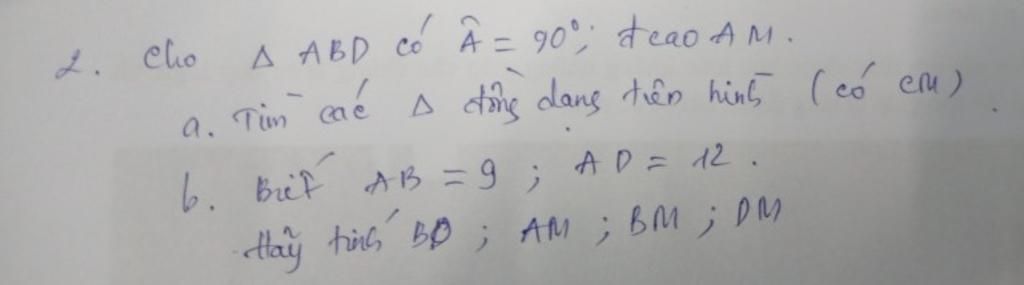 2. Cho Δ ABD có Â = 90°; đcao AM.
a. Tìm các Δ đồng dạng trên hình (có CM)
b. Biết AB = 9 ; AD = 12.
Hãy tính BD ; AM ; BM ; DM